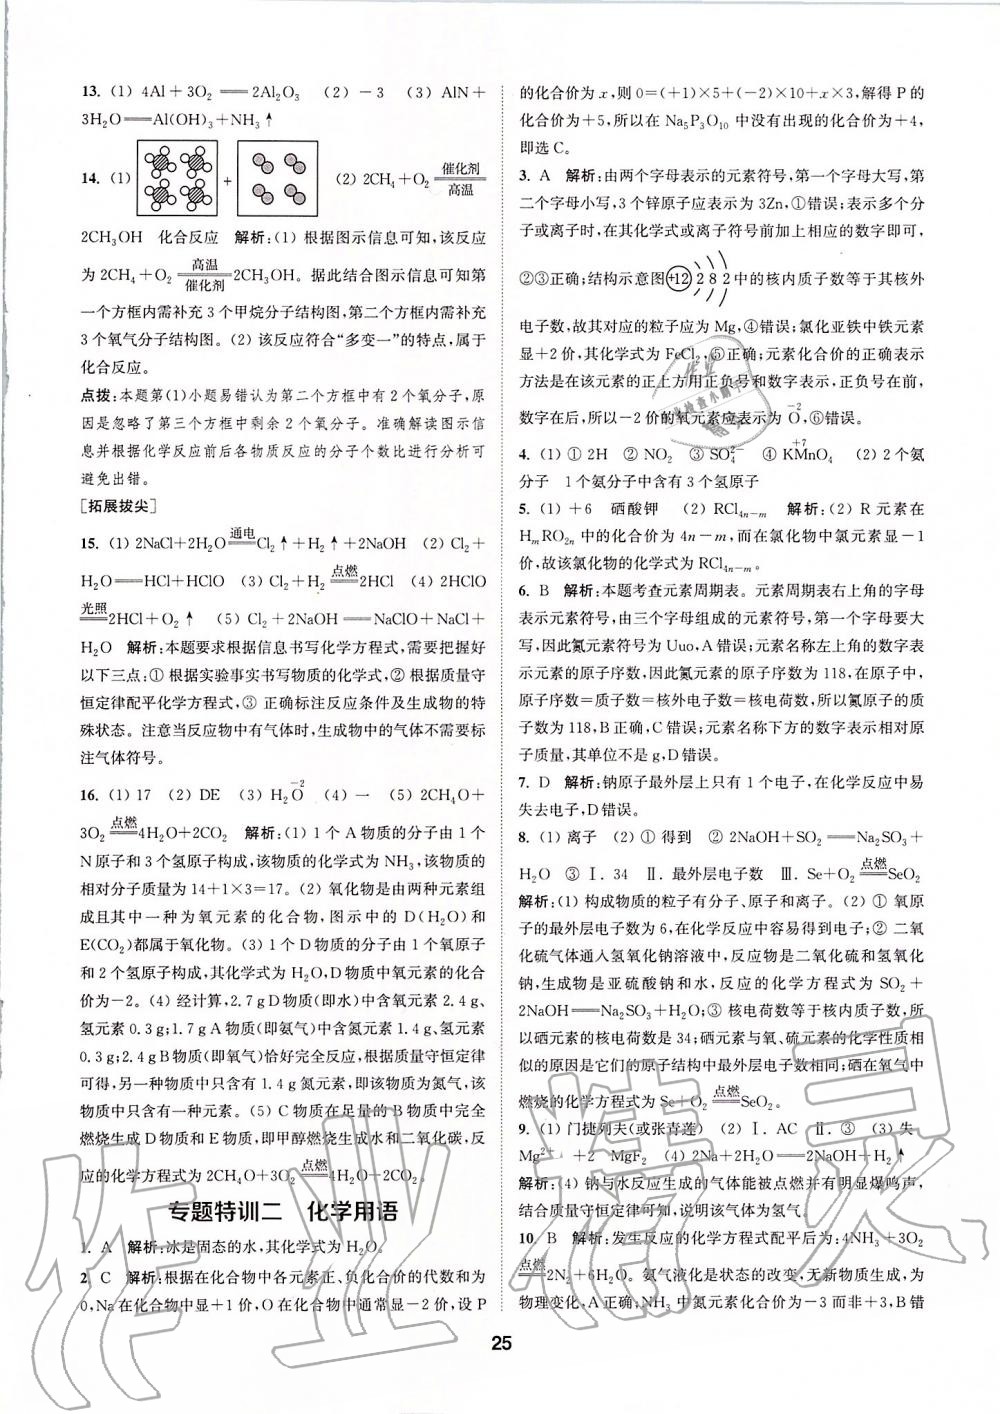 13. (1) 4Al+3O₂══2Al₂O₃ (2)-3 (3) AlN+
3H₂O══Al(OH)₃+NH₃↑
14. (1) + (2) 2CH₄+O₂ 催化剂/高温══
2CH₃OH 化合反应 解析:(1) 根据图示信息可知,该反应
为 2CH₄+O₂ 高温/催化剂══2CH₃OH。据此结合图示信息可知第
一个方框内需补充 3 个甲烷分子结构图,第二个方框内需补充
3 个氧气分子结构图。(2) 该反应符合“多变一”的特点,属于
化合反应。
点拨:本题第(1)小题易错认为第二个方框中有 2 个氧分子,原
因是忽略了第三个方框中剩余 2 个氧分子。准确解读图示信
息并根据化学反应前后各物质反应的分子个数比进行分析可
避免出错。
[拓展拔尖]
15. (1) 2NaCl+2H₂O 通电══Cl₂↑+H₂↑+2NaOH (2) Cl₂+
H₂O══HCl+HClO (3) Cl₂+H₂ 点燃══2HCl (4) 2HClO
光照══2HCl+O₂↑ (5) Cl₂+2NaOH══NaClO+NaCl+
H₂O 解析:本题要求根据信息书写化学方程式,需要把握好
以下三点:① 根据实验事实书写物质的化学式,② 根据质量守
恒定律配平化学方程式,③ 正确标注反应条件及生成物的特
殊状态。注意当反应物中有气体时,生成物中的气体不需要标
注气体符号。
16. (1) 17 (2) DE (3) H₂O(-2) (4) 一 (5) 2CH₄O+
3O₂ 点燃══4H₂O+2CO₂ 解析:(1) 1 个 A 物质的分子由 1 个
N 原子和 3 个氢原子构成,该物质的化学式为 NH₃,该物质的
相对分子质量为 14+1×3=17。(2) 氧化物是由两种元素组
成且其中一种为氧元素的化合物,图示中的 D(H₂O)和
E(CO₂)都属于氧化物。(3) 1 个 D 物质的分子由 1 个氧原子
和 2 个氢原子构成,其化学式为 H₂O,D 物质中氧元素的化合
价为-2。(4) 经计算,2.7 g D 物质(即水)中含氧元素 2.4 g、
氢元素 0.3 g;1.7 g A 物质(即氨气)中含氮元素 1.4 g、氢元素
0.3 g;2.4 g B 物质(即氧气)恰好完全反应,根据质量守恒定律
可得,另一种物质中只含有 1.4 g 氮元素,即该物质为氮气,该
物质中只含有一种元素。(5) C 物质在足量的 B 物质中完全
燃烧生成 D 物质和 E 物质,即甲醇燃烧生成水和二氧化碳,反
应的化学方程式为 2CH₄O+3O₂ 点燃══4H₂O+2CO₂。
专题特训二 化学用语
1. A 解析:冰是固态的水,其化学式为 H₂O。
2. C 解析:根据在化合物中各元素正、负化合价的代数和为
0,Na 在化合物中显+1 价,O 在化合物中通常显-2 价,设 P
的化合价为 x,则 0=(+1)×5+(-2)×10+x×3,解得 P 的
化合价为+5,所以在 Na₅P₃O₁₀ 中没有出现的化合价为+4,
即选 C。
3. A 解析:由两个字母表示的元素符号,第一个字母大写,第
二个字母小写,3 个锌原子应表示为 3Zn,①错误;表示多个分
子或离子时,在其化学式或离子符号前加上相应的数字即可,
②③正确;结构示意图 +12 2 8 2 中的核内质子数等于其核外
电子数,故其对应的粒子应为 Mg,④错误;氯化亚铁中铁元素
显+2 价,其化学式为 FeCl₂,⑤正确;元素化合价的正确表示
方法是在该元素的正上方用正负号和数字表示,正负号在前,
数字在后,所以-2 价的氧元素应表示为 O(-2),⑥错误。
4. (1) ① 2H ② NO₂ ③ SO₄²⁻ ④ KMnO₄(+7) (2) 2 个氨
分子 1 个氨分子中含有 3 个氢原子
5. (1) +6 硒酸钾 (2) RCl₄ₙ₋ₘ 解析:(2) R 元素在
HₘRO₂ₙ 中的化合价为 4n-m,而在氯化物中氯元素显-1
价,故该氯化物的化学式为 RCl₄ₙ₋ₘ。
6. B 解析:本题考查元素周期表。元素周期表右上角的字母
表示元素符号,由三个字母组成的元素符号,第一个字母要大
写,因此氮元素符号为 Uuo,A 错误;元素名称左上角的数字表
示元素的原子序数,因此氮元素的原子序数为 118,在原子中,
原子序数=质子数=核外电子数=核电荷数,所以氮原子的质
子数为 118,B 正确,C 错误;元素名称下方的数字表示相对原
子质量,其单位不是 g,D 错误。
7. D 解析:钠原子最外层上只有 1 个电子,在化学反应中易
失去电子,D 错误。
8. (1) 离子 (2) ① 得到 ② 2NaOH+SO₂══Na₂SO₃+
H₂O ③ Ⅰ. 34 Ⅱ. 最外层电子数 Ⅲ. Se+O₂ 点燃══SeO₂
解析:(1) 构成物质的粒子有分子、原子和离子。(2) ① 氧原
子的最外层电子数为 6,在化学反应中容易得到电子;② 二氧
化硫气体通入氢氧化钠溶液中,反应物是二氧化硫和氢氧化
钠,生成物是亚硫酸钠和水,反应的化学方程式为 SO₂+
2NaOH══Na₂SO₃+H₂O;③ 核电荷数等于核内质子数,所
以硒元素的核电荷数是 34;硒元素与氧、硫元素的化学性质相
似的原因是它们的原子结构中最外层电子数相同;硒在氧气中
燃烧的化学方程式为 Se+O₂ 点燃══SeO₂。
9. (1) 门捷列夫(或张青莲) (2) Ⅰ. AC Ⅱ. ③ (3) 失
Mg²⁺ +2 MgF₂ (4) 2Na+2H₂O══2NaOH+H₂↑
解析:(4) 钠与水反应生成的气体能被点燃并有明显爆鸣声,
结合质量守恒定律可知,说明该气体为氢气。
10. B 解析:发生反应的化学方程式配平后为:4NH₃+3O₂
点燃══2N₂+6H₂O。氨气液化是状态的改变,无新物质生成,为
物理变化,A 正确,NH₃ 中氮元素化合价为-3 而非+3,B 错
25
作业精灵